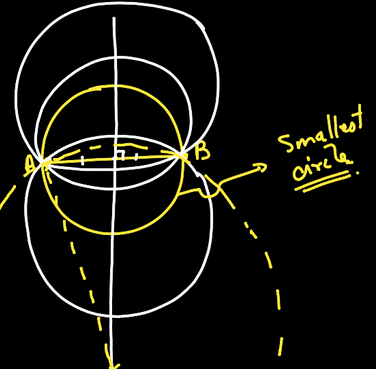 A
B
Smallest
circle.